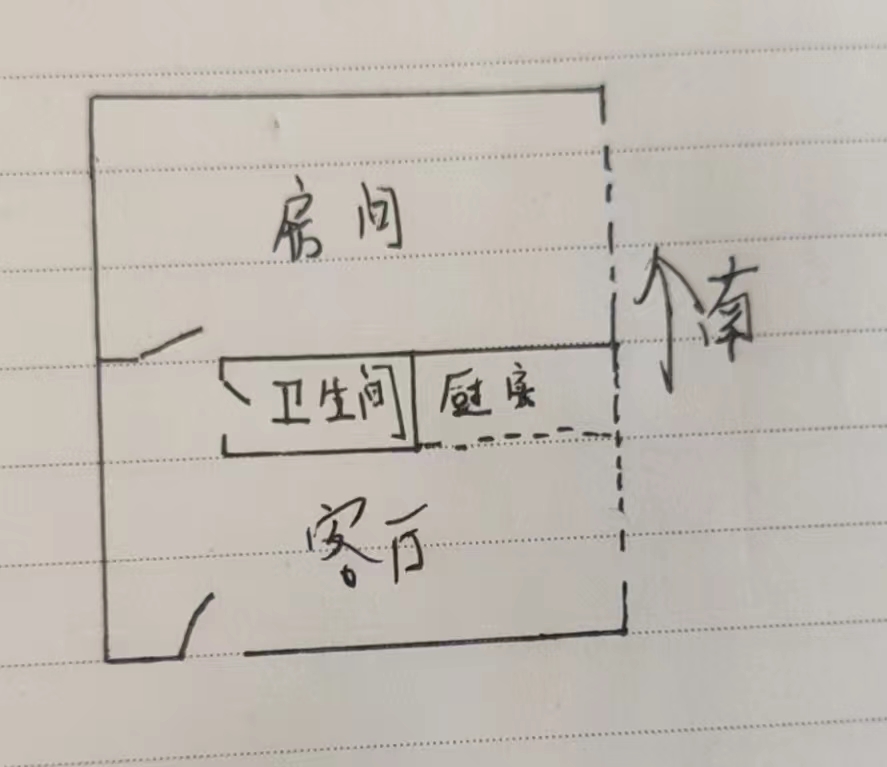 房间
南
卫生间 厨房
客厅